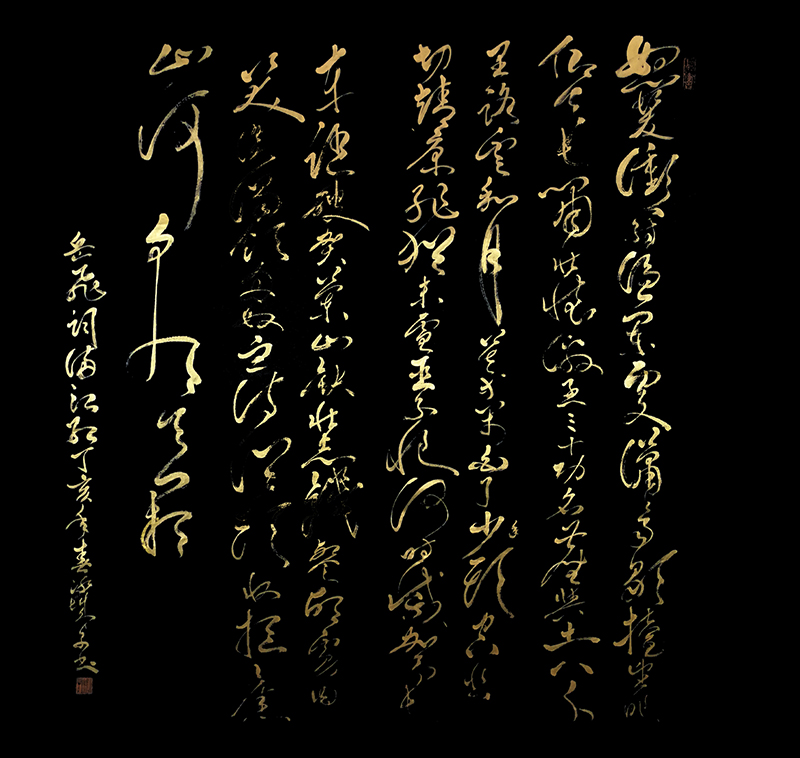 怒髮衝冠憑闌處瀟々雨歇擡望眼
仰天長嘯壯懷激烈三十功名塵與土八千
里路雲和月莫等閑白了少年頭空悲
切靖康恥猶未雪臣子恨何時滅駕長
車踏破賀蘭山缺壯志飢餐胡虜肉
笑談渴飲匈奴血待從頭收拾舊
山河朝天闕
岳飛詞滿江紅丁亥年春書